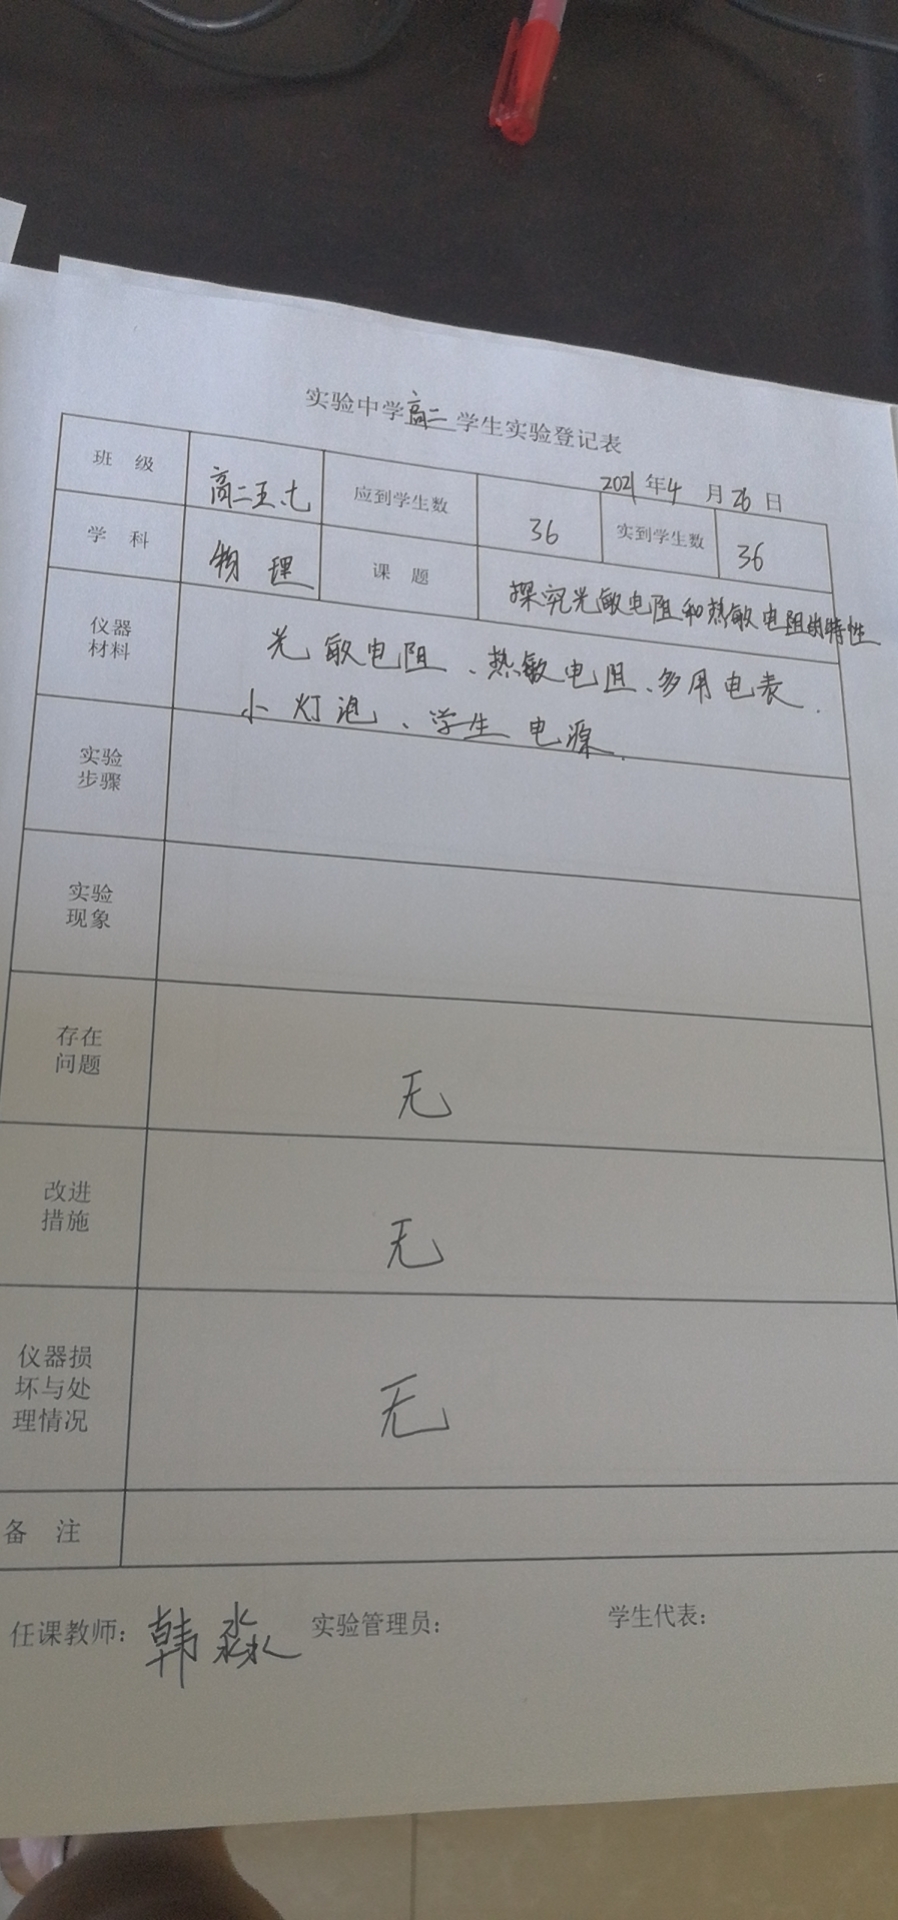 实验中学高二学生实验登记表
2021年4月26日
班 级 高二五.七 应到学生数 36 实到学生数 36
学 科 物理 课 题 探究光敏电阻和热敏电阻的特性
仪器
材料
光敏电阻、热敏电阻、多用电表、
小灯泡、学生电源.
实验
步骤
实验
现象
存在
问题
无
改进
措施
无
仪器损
坏与处
理情况
无
备 注
任课教师：韩淼 实验管理员： 学生代表：